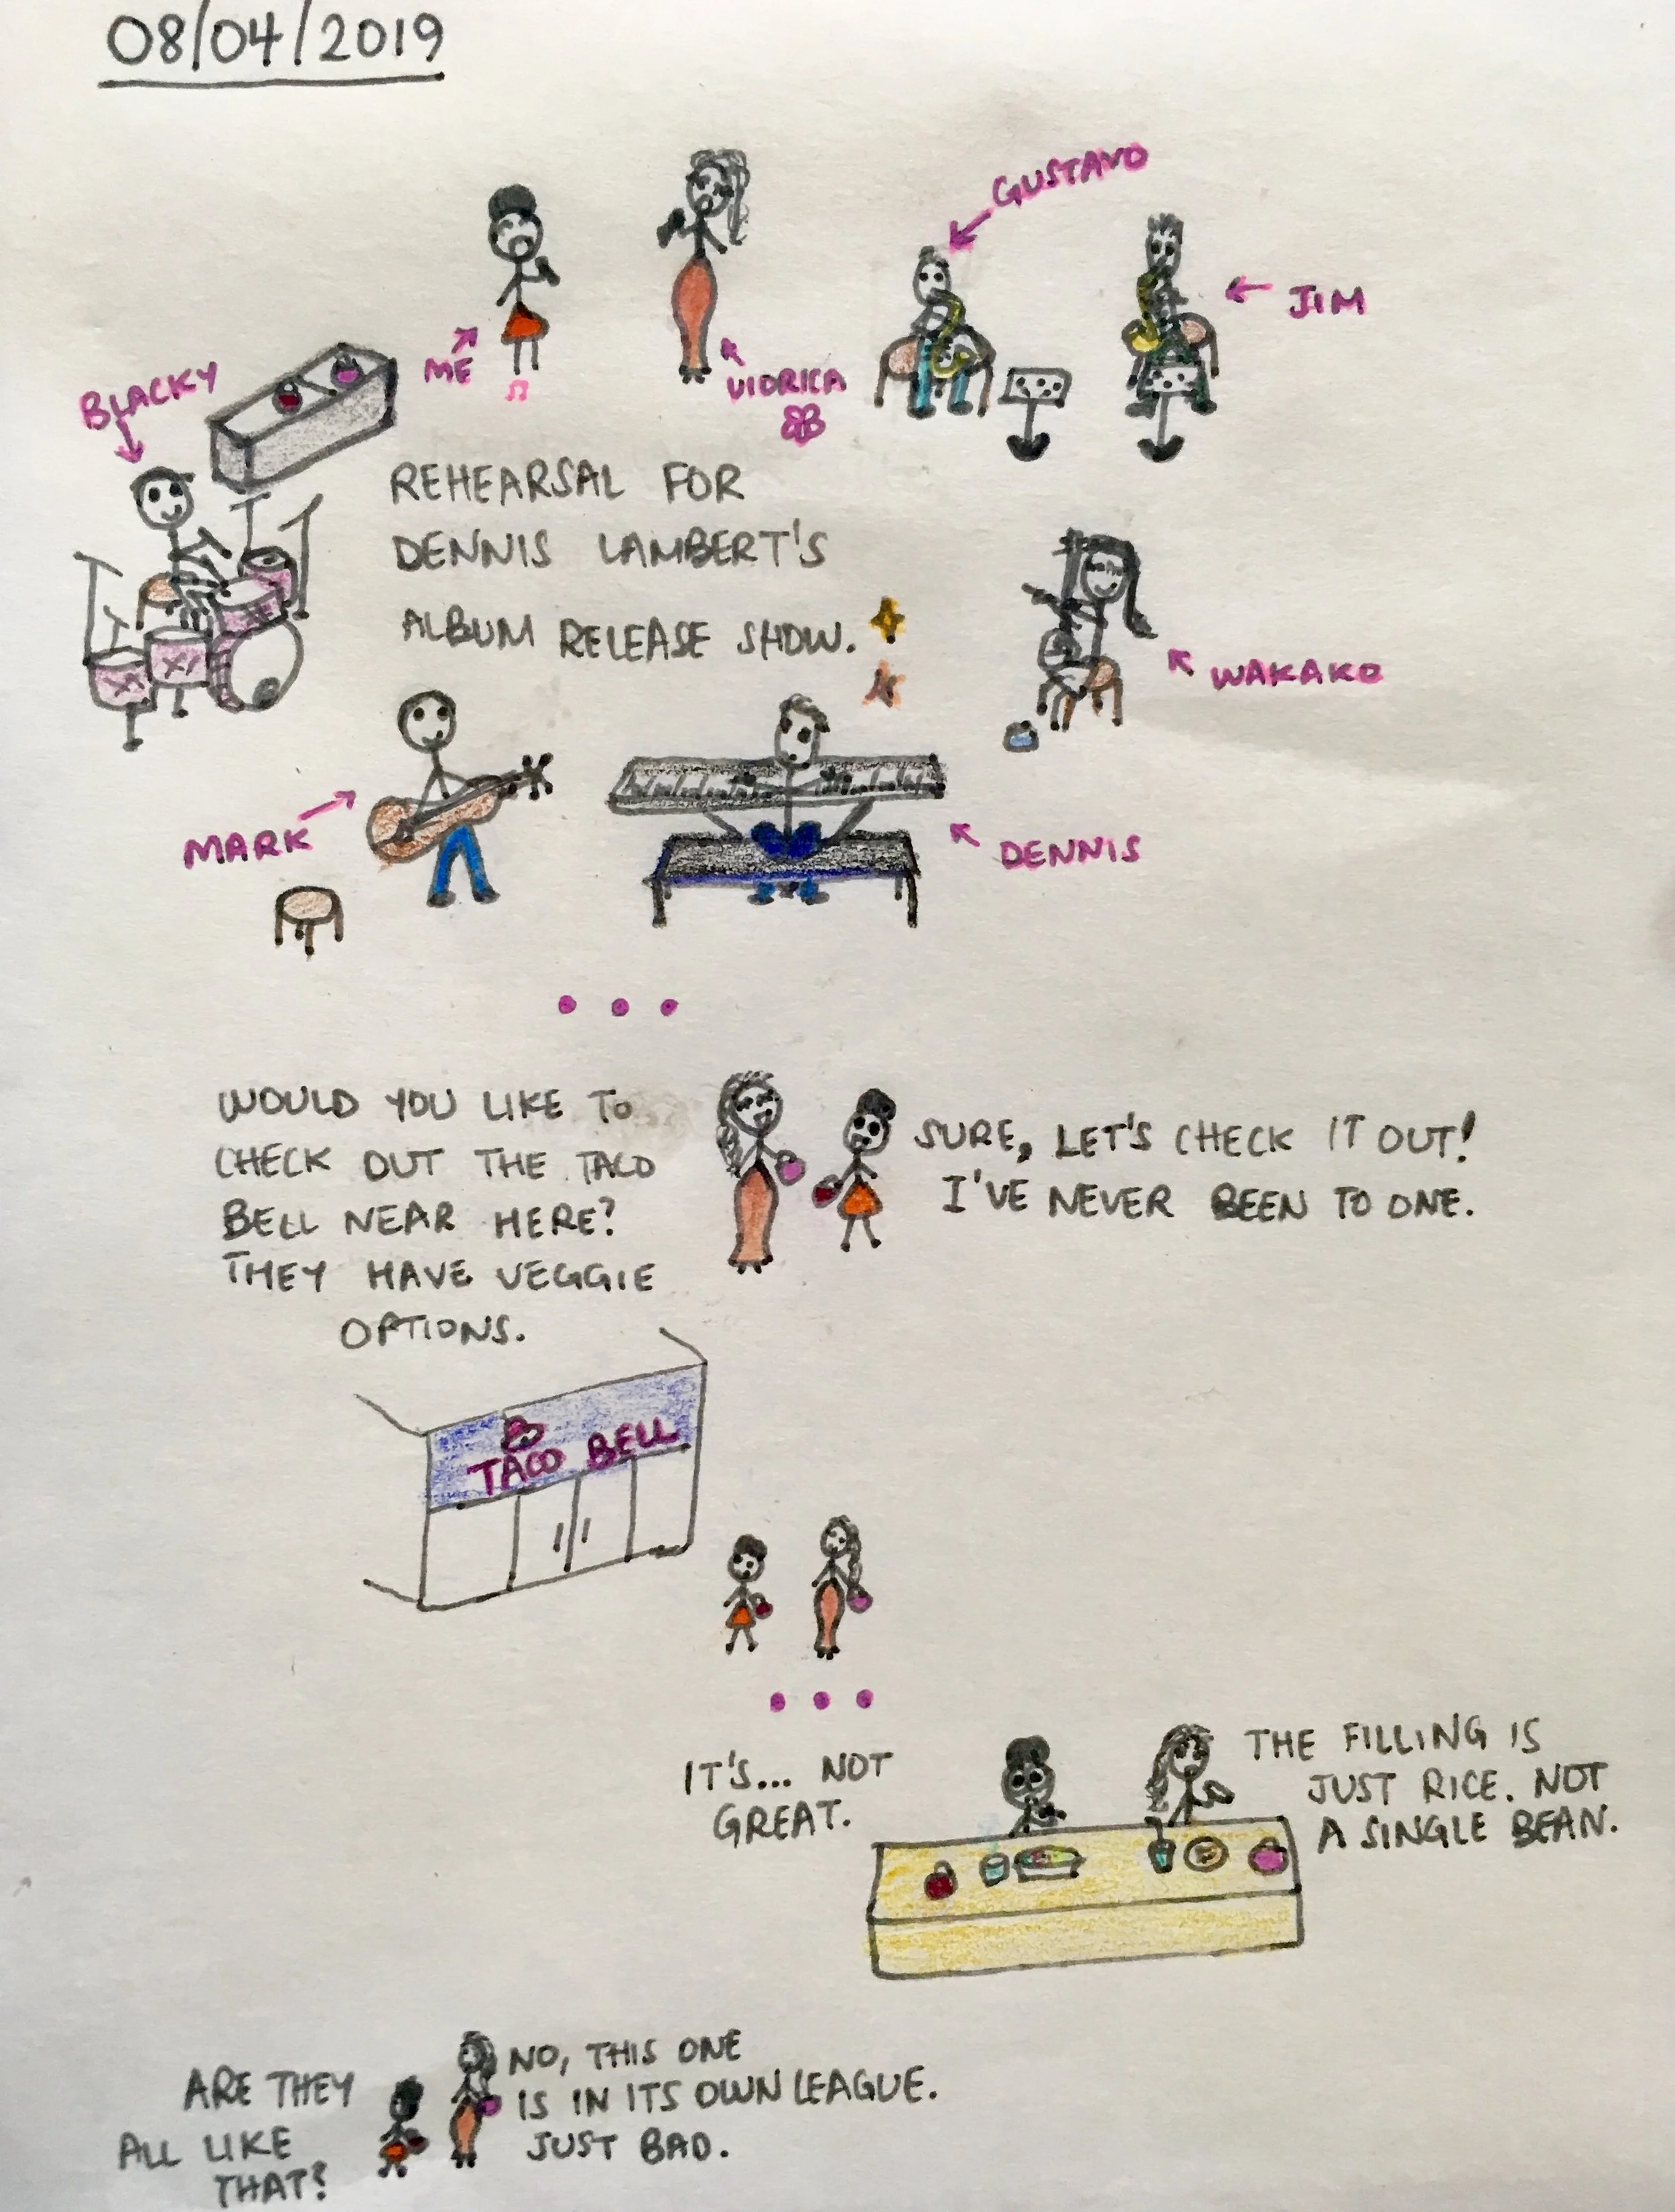 08/04/2019
GUSTAVO
JIM
ME
VIDRICA
BLACKY
REHEARSAL FOR
DENNIS LAMBERT'S
ALBUM RELEASE SHOW.
WAKAKO
MARK
DENNIS
...
WOULD YOU LIKE TO
CHECK OUT THE TACO
BELL NEAR HERE?
THEY HAVE VEGGIE
OPTIONS.
SURE, LET'S CHECK IT OUT!
I'VE NEVER BEEN TO ONE.
TACO BELL
...
IT'S... NOT
GREAT.
THE FILLING IS
JUST RICE. NOT
A SINGLE BEAN.
ARE THEY
ALL LIKE
THAT?
NO, THIS ONE
IS IN ITS OWN LEAGUE.
JUST BAD.